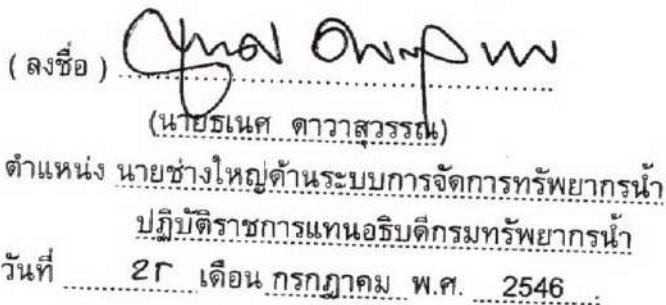 ( ลงชื่อ )
(นายธเนศ ดาวาสุวรรณ)
ตำแหน่ง นายช่างใหญ่ด้านระบบการจัดการทรัพยากรน้ำ
ปฏิบัติราชการแทนอธิบดีกรมทรัพยากรน้ำ
วันที่ เดือน กรกฎาคม พ.ศ. 2546